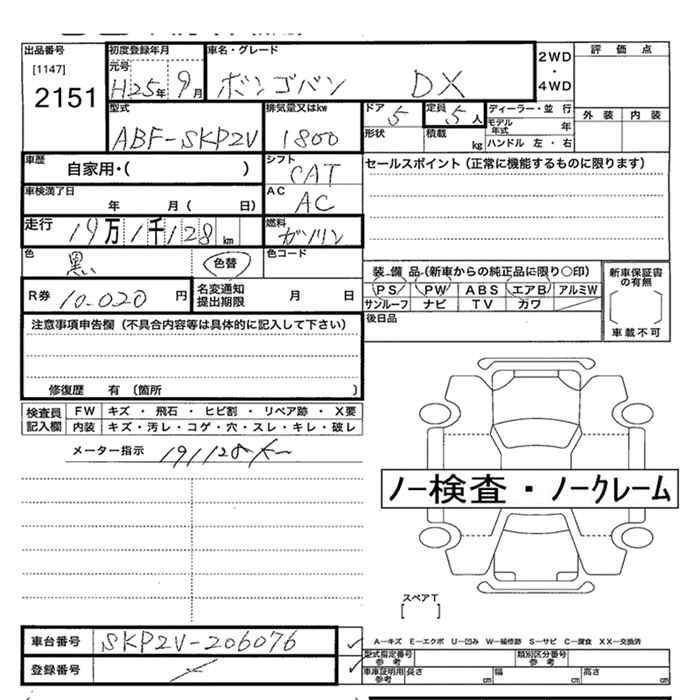 出品番号 初度登録年月 車名・グレード 2WD・4WD 評価点
[1147] 元号
2151 H25年 9月 ボンゴバン DX
型式 排気量又はkw ドア 5 定員 5人 ディーラー・並行 外装 内装
ABF-SKP2V 1800 形状 積載 kg モデル年式 年
ハンドル 左・右
車歴 自家用・( ) シフト CAT セールスポイント(正常に機能するものに限ります)
車検満了日 年 月( 日) AC AC
走行 19万1千128km 燃料 ガソリン
色 黒 色替 色コード
装備品(新車からの純正品に限り○印) 新車保証書の有無
R券 10-020 円 名変通知提出期限 月 日 PS PW ABS エアB アルミW
サンルーフ ナビ TV カワ 車載不可
注意事項申告欄(不具合内容等は具体的に記入して下さい) 後日品
修復歴 有(箇所 )
検査員記入欄 FW キズ・飛石・ヒビ割・リペア跡・X要
内装 キズ・汚レ・コゲ・穴・スレ・キレ・破レ
メーター指示 191128K
ノー検査・ノークレーム
スペアT
[ ]
車台番号 SKP2V-206076 A−キズ E−エクボ U−凹み W−補修跡 S−サビ C−腐食 XX−交換済
登録番号 型式指定番号 参考 類別区分番号 参考
車庫証明用 参考 長さ cm 幅 cm 高さ cm